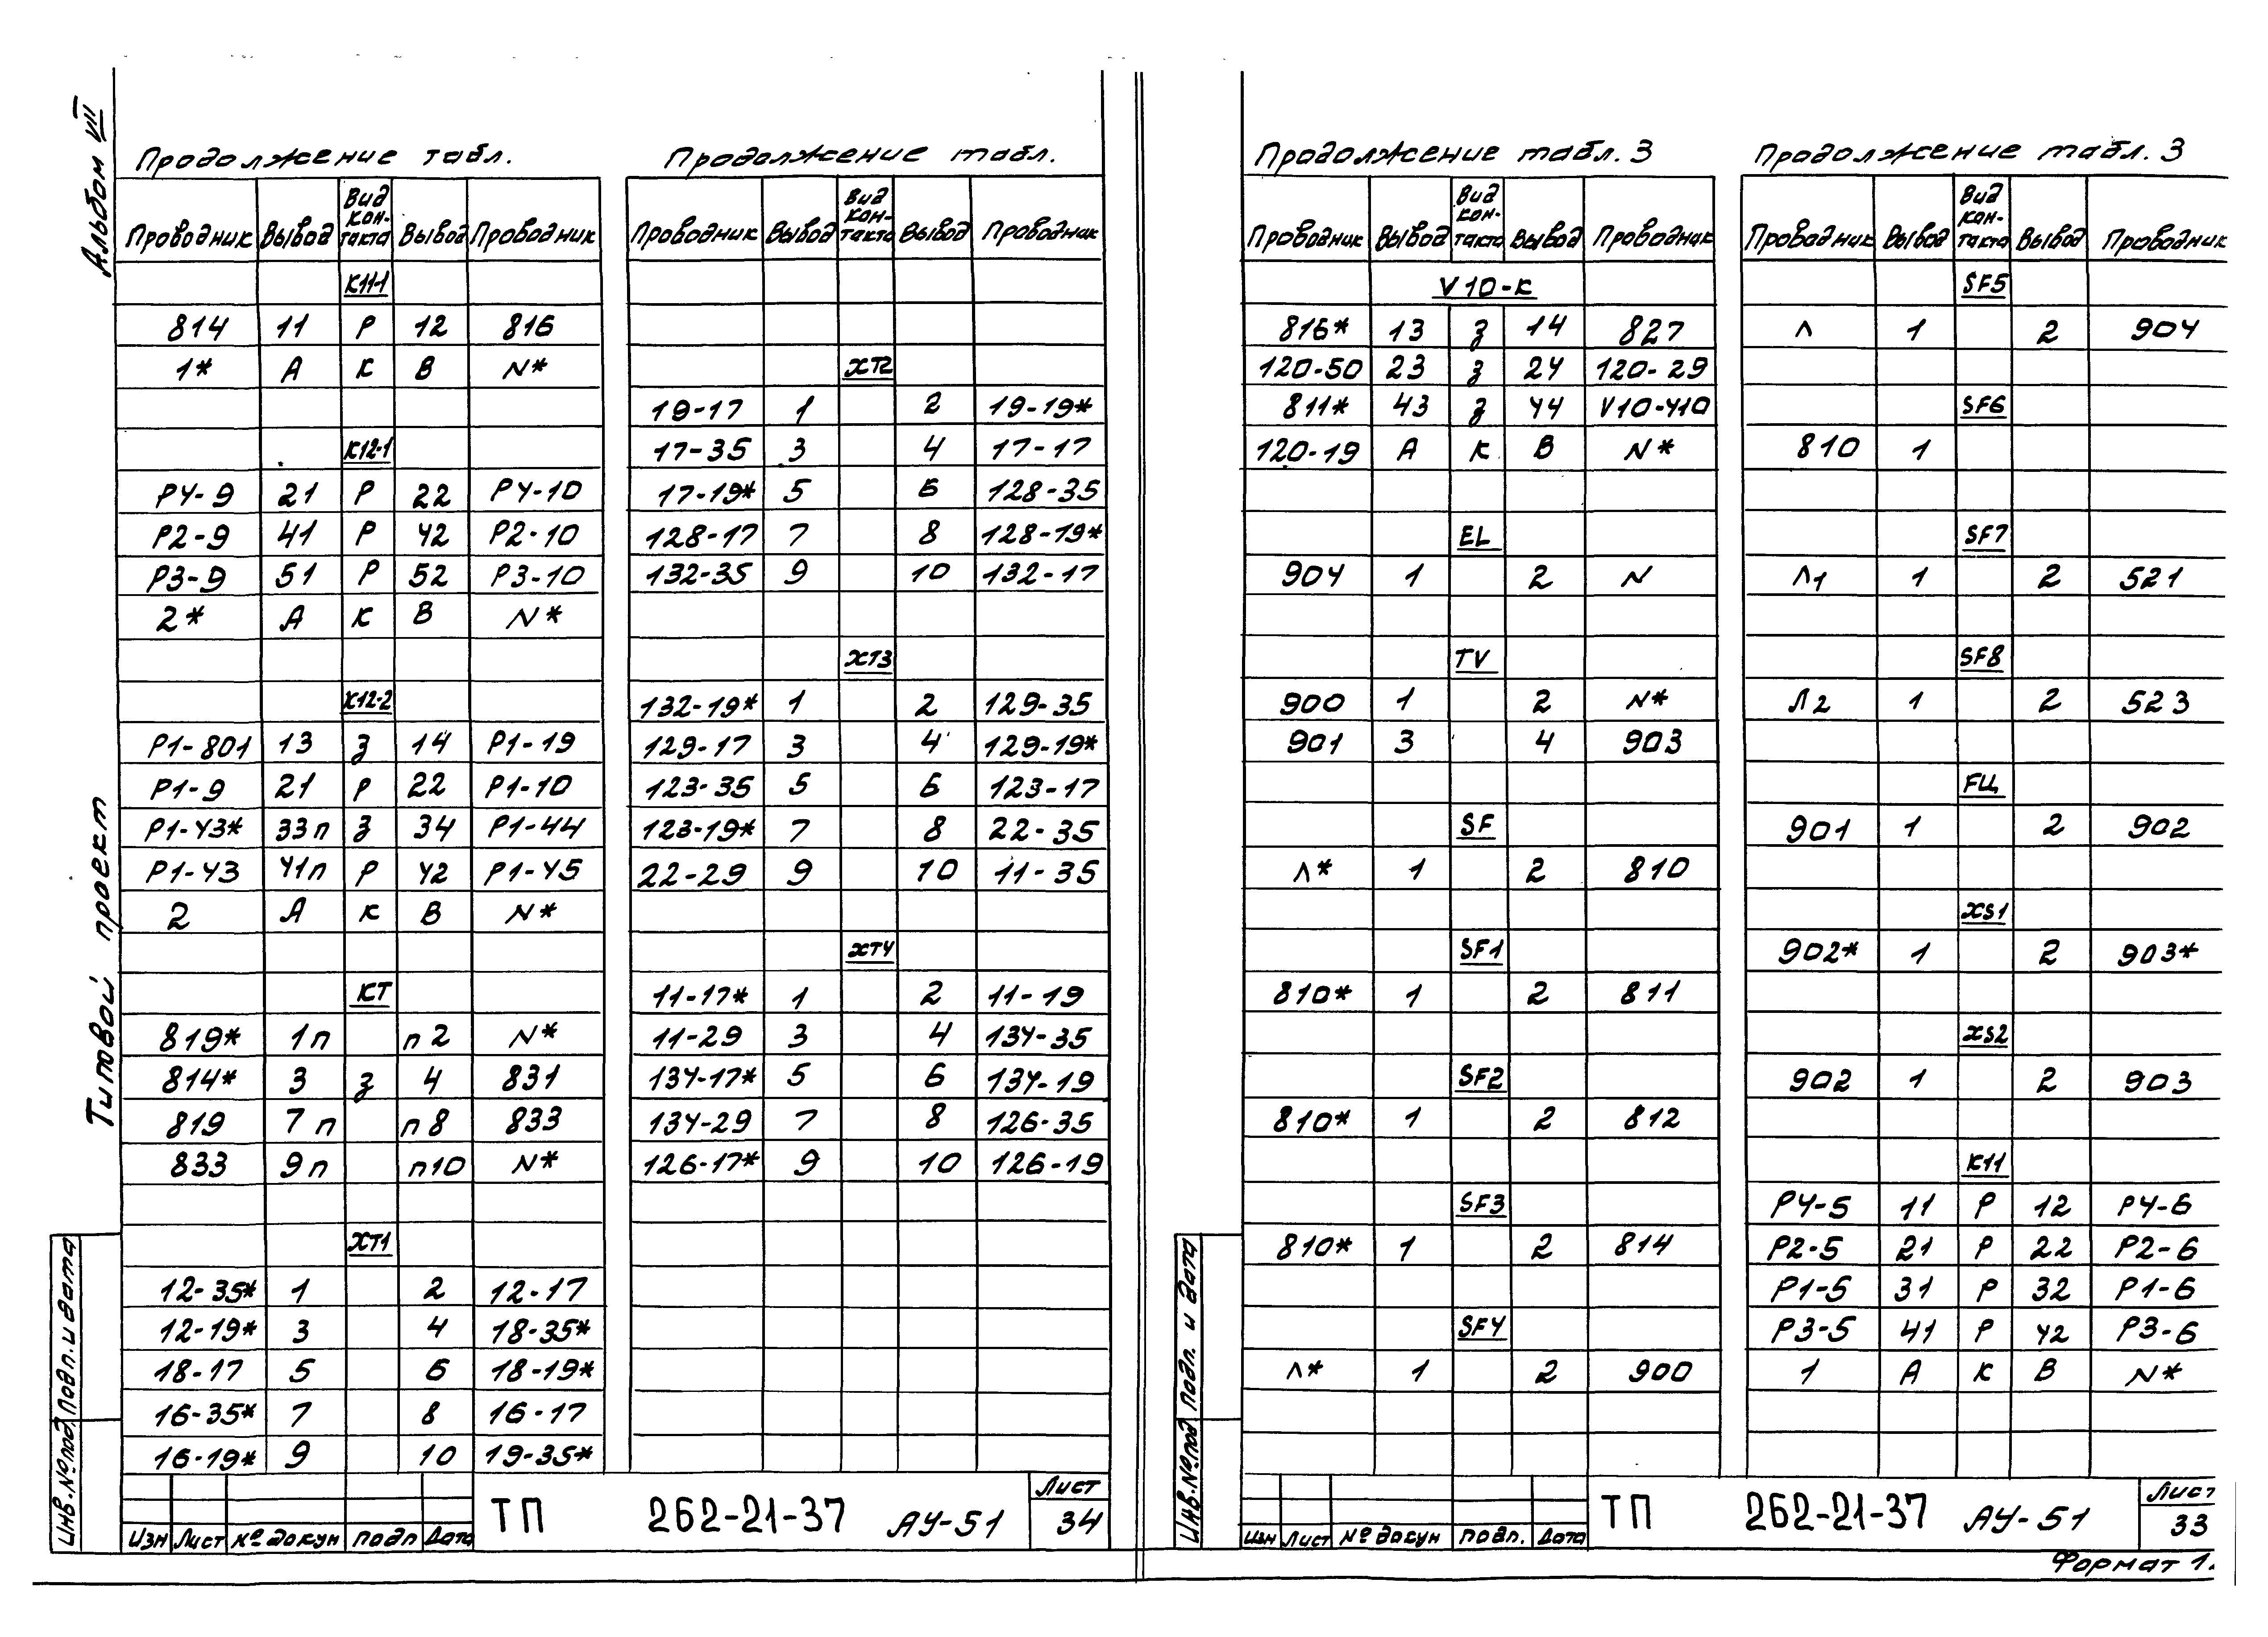 Альбом VII
Типовой проект
Продолжение табл.
Проводник Вывод Вид контакта Вывод Проводник
К11-1
814 11 Р 12 816
1* А К В N*
К12-1
Р4-9 21 Р 22 Р4-10
Р2-9 41 Р 42 Р2-10
Р3-9 51 Р 52 Р3-10
2* А К В N*
К12-2
Р1-801 13 З 14 Р1-19
Р1-9 21 Р 22 Р1-10
Р1-43* 33п З 34 Р1-44
Р1-43 41п Р 42 Р1-45
2 А К В N*
КТ
819* 1п п2 N*
814* 3 З 4 831
819 7п п8 833
833 9п п10 N*
ХТ1
12-35* 1 2 12-17
12-19* 3 4 18-35*
18-17 5 6 18-19*
16-35* 7 8 16-17
16-19* 9 10 19-35*
Продолжение табл.
Проводник Вывод Вид контакта Вывод Проводник
ХТ2
19-17 1 2 19-19*
17-35 3 4 17-17
17-19* 5 6 128-35
128-17 7 8 128-19*
132-35 9 10 132-17
ХТ3
132-19* 1 2 129-35
129-17 3 4 129-19*
123-35 5 6 123-17
123-19* 7 8 22-35
22-29 9 10 11-35
ХТ4
11-17* 1 2 11-19
11-29 3 4 134-35
134-17* 5 6 134-19
134-29 7 8 126-35
126-17* 9 10 126-19
Инв.№под. Подп. и дата
Изм Лист № докум подп Дата
ТП 262-21-37 АУ-51
Лист
34
Продолжение табл. 3
Проводник Вывод Вид контакта Вывод Проводник
V10-К
816* 13 З 14 827
120-50 23 З 24 120-29
811* 43 З 44 V10-410
120-19 А К В N*
EL
904 1 2 N
TV
900 1 2 N*
901 3 4 903
SF
Л* 1 2 810
SF1
810* 1 2 811
SF2
810* 1 2 812
SF3
810* 1 2 814
SF4
Л* 1 2 900
Продолжение табл. 3
Проводник Вывод Вид контакта Вывод Проводник
SF5
Л 1 2 904
SF6
810 1
SF7
Л1 1 2 521
SF8
Л2 1 2 523
FЦ
901 1 2 902
XS1
902* 1 2 903*
XS2
902 1 2 903
К11
Р4-5 11 Р 12 Р4-6
Р2-5 21 Р 22 Р2-6
Р1-5 31 Р 32 Р1-6
Р3-5 41 Р 42 Р3-6
1 А К В N*
Инв.№под Подп. и дата
Изм Лист № докум подп. Дата
ТП 262-21-37 АУ-51
Лист
33
Формат 1.